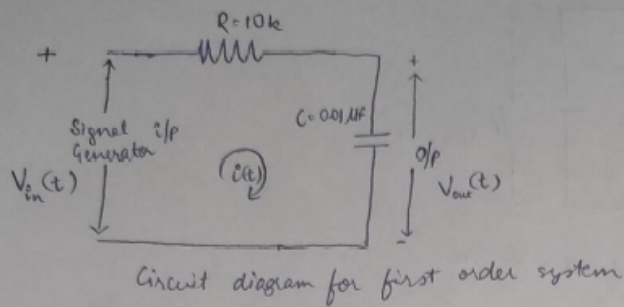 R=10k
+
+
Signal i/p
Generator
C=0.01μF
i(t)
O/p
V_in(t)
V_out(t)
-
Circuit diagram for first order system